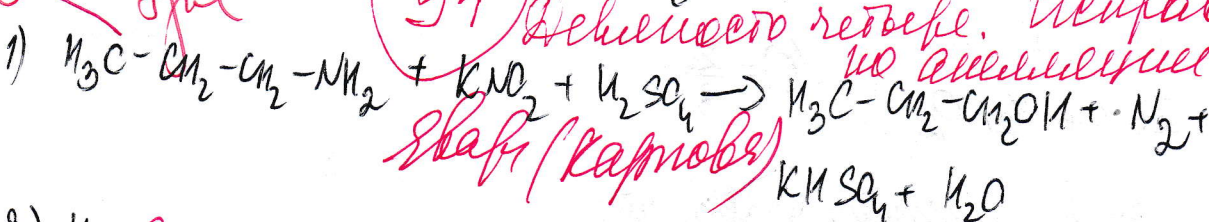 94
Девяносто четыре. Исправ
по апелляции
1) H₃C-CH₂-CH₂-NH₂ + KNO₂ + H₂SO₄ → H₃C-CH₂-CH₂OH + N₂ +
(Карпова)
KHSO₄ + H₂O